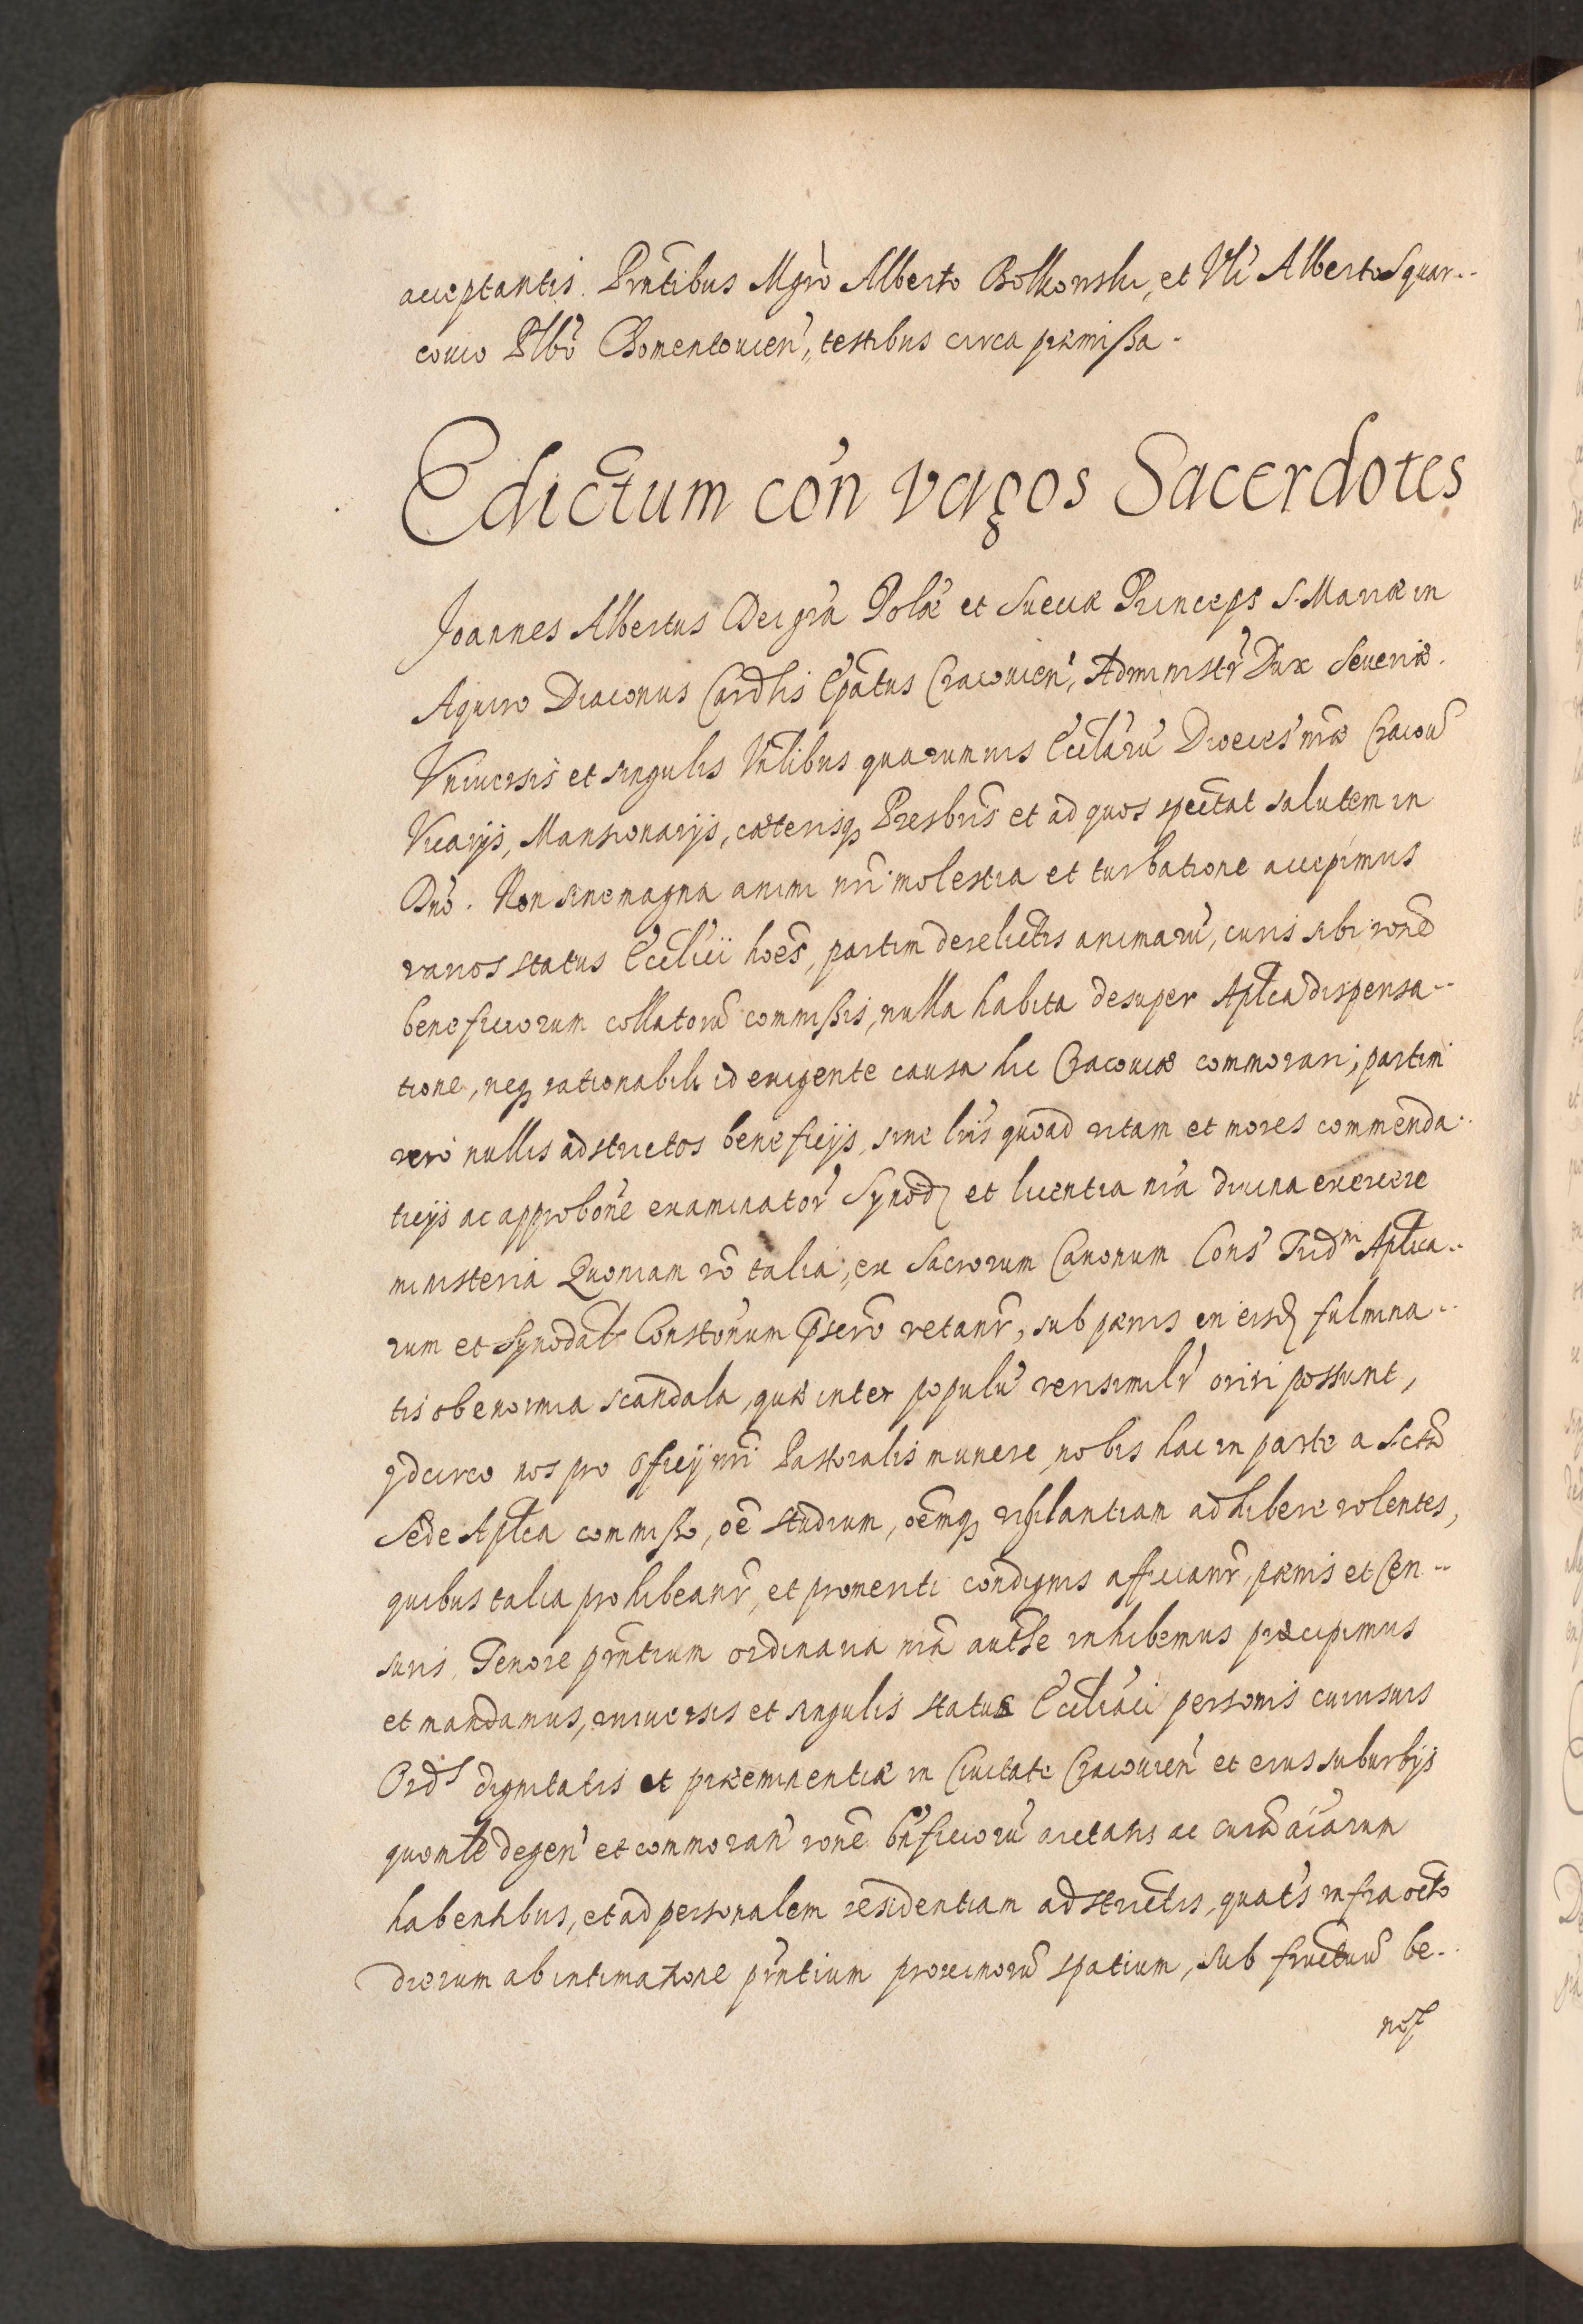 acceptantis. Pntibus Mgro Alberto Bolkowski, et Vli Alberto Squar--
covio Plbo Chomentovien, testibus circa præmissa.
Edictum con vagos Sacerdotes
Joannes Albertus Dei gra Polæ et Sueciæ Princeps S. Mariæ in
Aquiro Diaconus Cardlis Epatus Cracovien, Administr Dux Severiæ.
Vniversis et singulis Vnlibus quarumvis Eccla͠ru Dioeces nræ Cracou
Vicarijs, Mansionarijs, cæterisq Presbris et ad quos spectat salutem in
Dno. Non sine magna animi nri molestia et turbatione accepimus
varios status Ecclici hoes, partim derelictis animaru, curis sibi rone
beneficiorum collatoru commissis, nulla habita desuper Aplica dispensa--
tione, neq rationabili id exigente causa hic Cracoviæ commorari; partim
vero nullis adstrictos beneficijs, sine lris quoad vitam et mores commenda--
ticijs ac approbone examinator Synod et licentia nra divina exercere
ministeria Quoniam vo talia, ex Sacrorum Canonum Cons Tridni Aplica--
rum et Synodal Constonum psero vetanr, sub pænis in eisd fulmina--
tis ob enormia scandala, quæ inter populu verisimilr oriri possunt,
Idcirco nos pro officij nri Pastoralis munere nobis hac in parte a S.cta
Sede Aplica commisso, oe studium, oemq vigilantiam adhibere volentes,
quibus talia prohibeanr, et promeriti condignis afficianr, pænis et Cen--
suris. Tenore pntium ordinaria nra authe inhibemus præcipimus
et mandamus, universis et singulis status Eccliaci personis cuiusvis
Ordis dignitatis et præeminentiæ in Civitate Cracovien et eius suburbijs
quomlt degen et commoran rone bnficioru arctatis ac curam aiarum
habentibus, et ad personalem residentiam adstrictis, quats infra octo
dierum ab intimatione pntium proximoru spatium, sub fructuu be--
nef